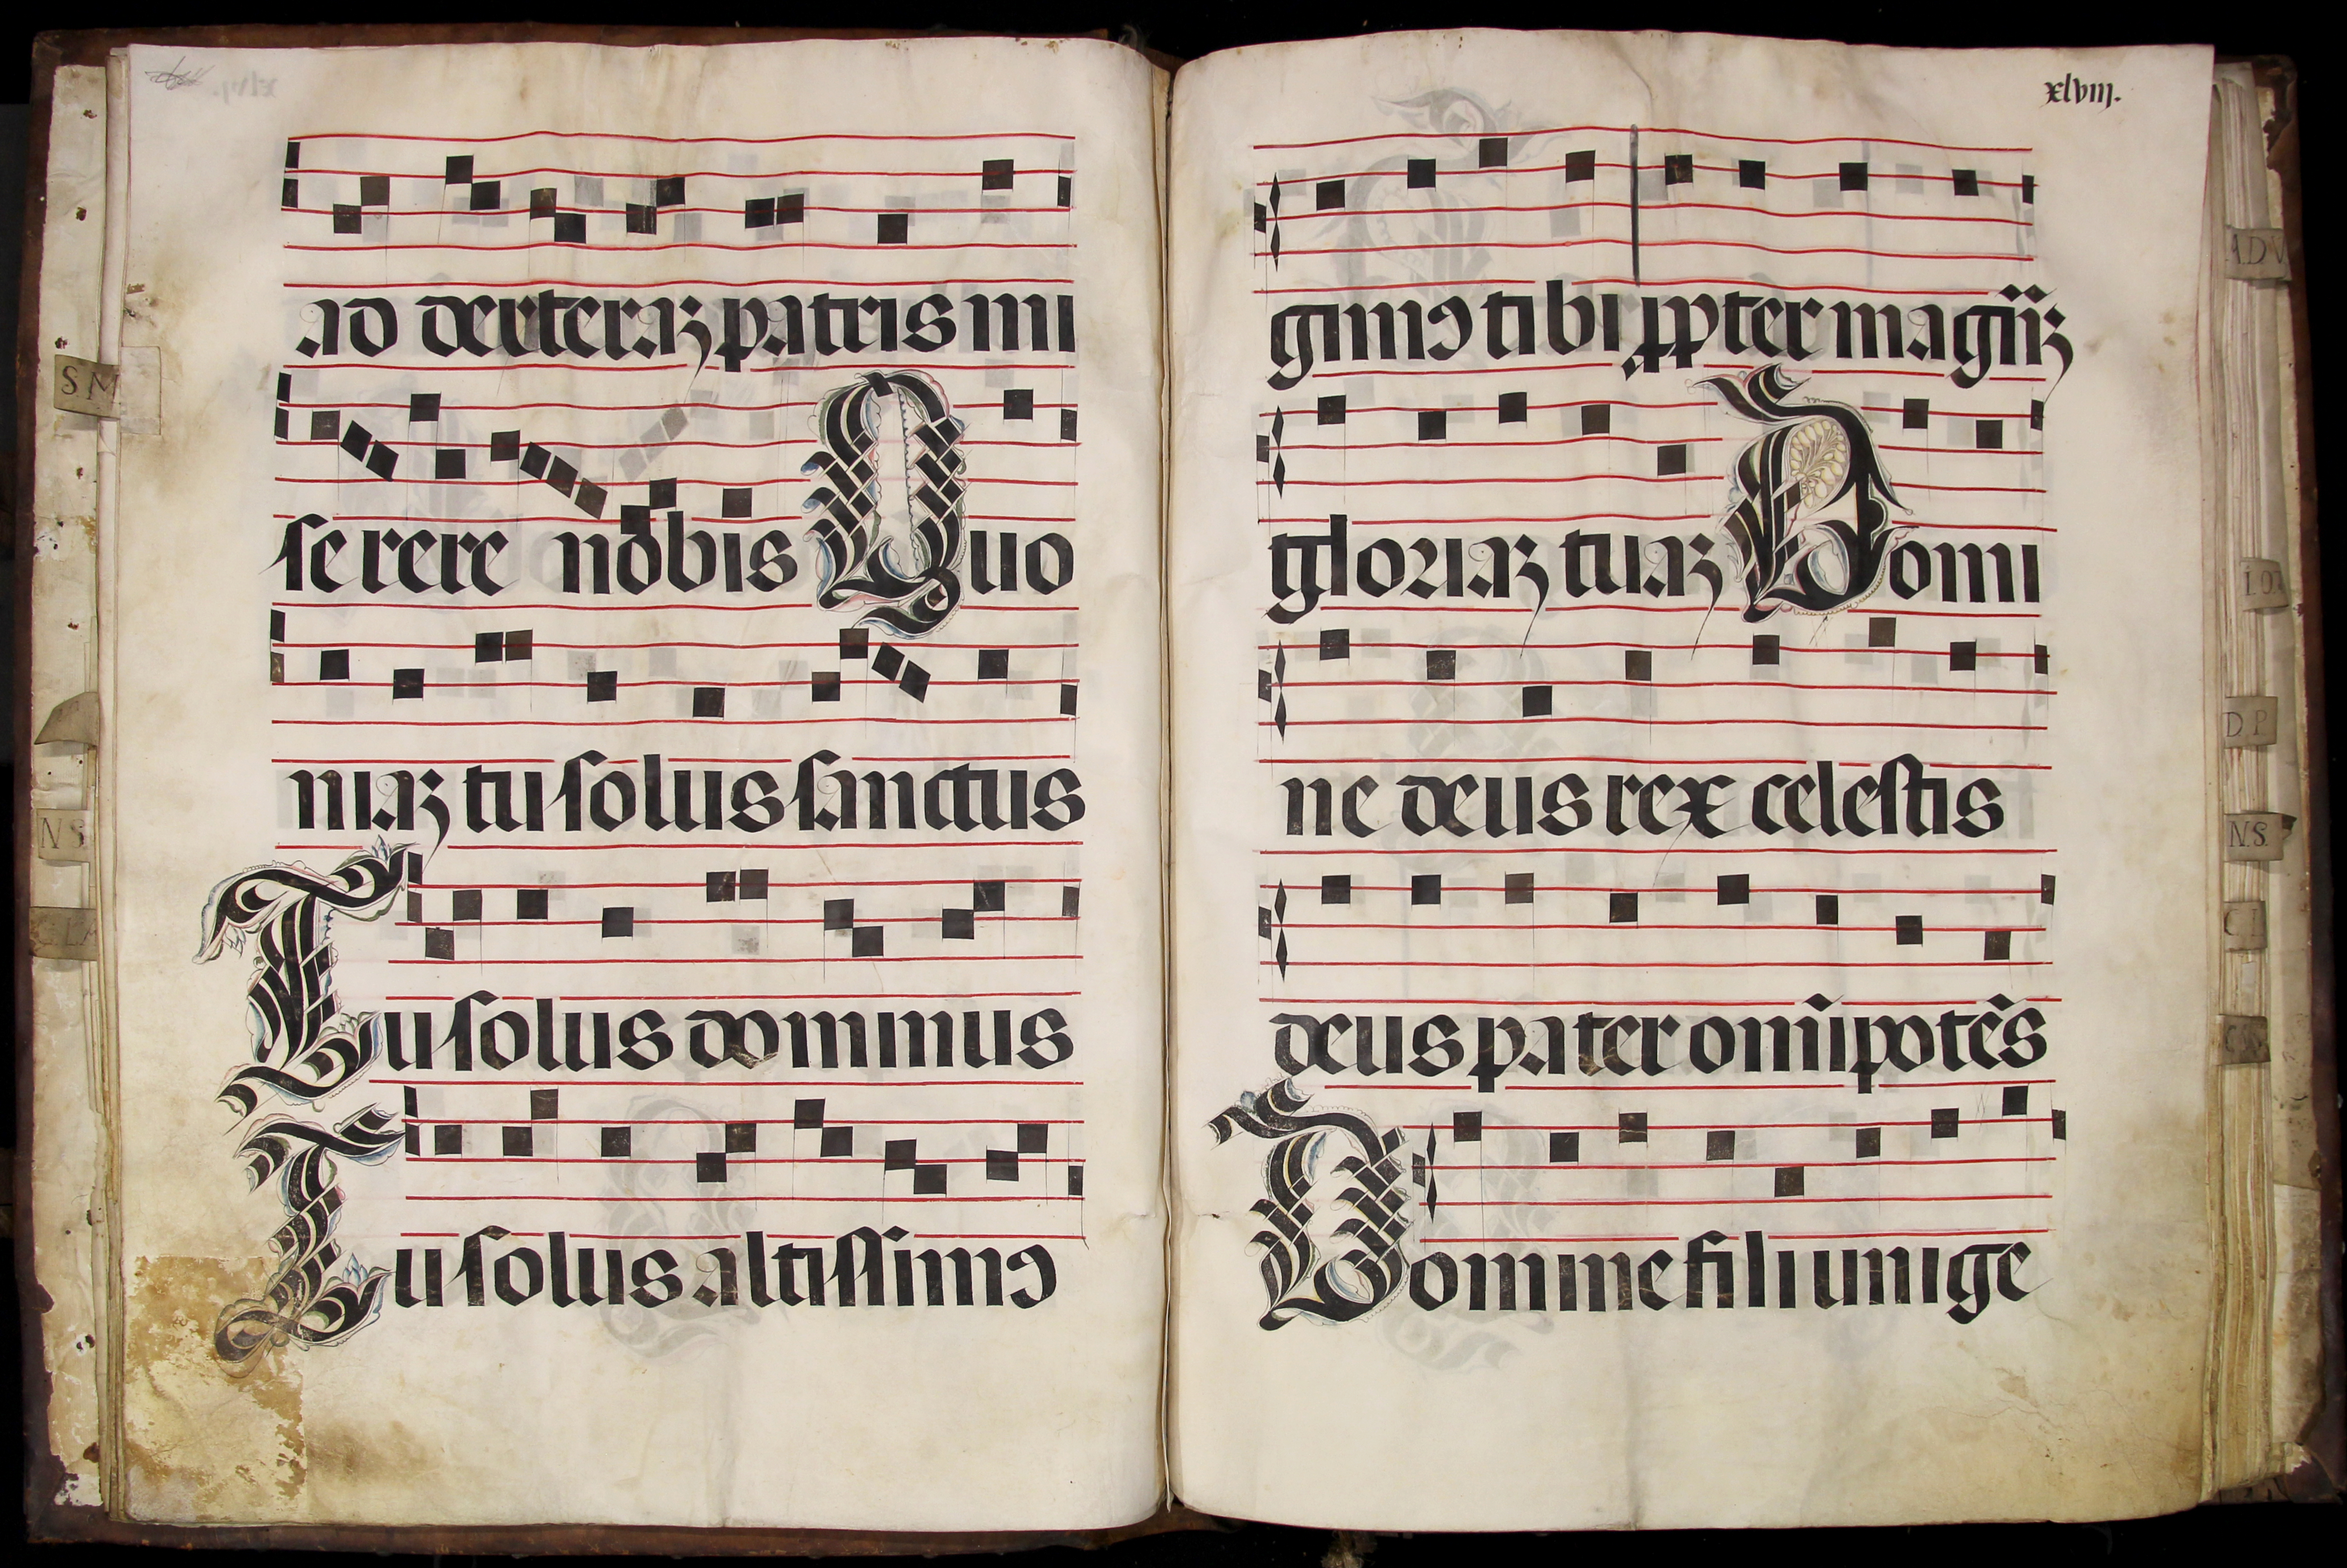 ad dexteraꝫ patris mi
serere nobis Quo
niaꝫ tu solus sanctus
Tu solus dominus
Tu solus altissimꝰ
xlviij.
gimꝰ tibi ꝓpter magnā
gloriaꝫ tuaꝫ Domi
ne deus rex celestis
deus pater om̄ipotēs
Domine fili unige
S M
N S
A D V
D P
N. S.